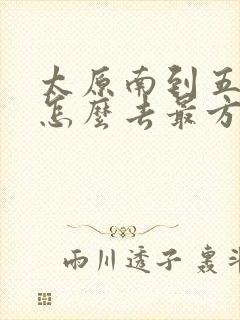 太原南到五
怎麼去最方
雨川透子 裏